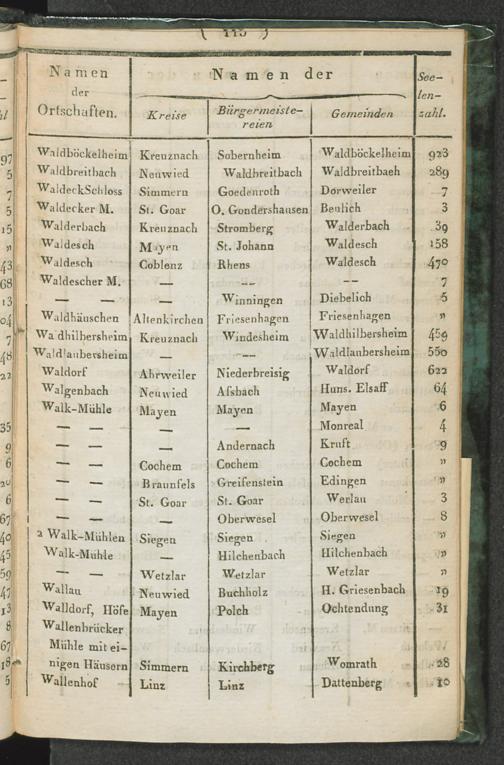 ( 115 )
Namen der Ortschaften. | Namen der | Seelenzahl.
Kreise | Bürgermeistereien | Gemeinden
Waldböckelheim | Kreuznach | Sobernheim | Waldböckelheim | 923
Waldbreitbach | Neuwied | Waldbreitbach | Waldbreitbach | 289
WaldeckSchloss | Simmern | Goedenroth | Dorweiler | 7
Waldecker M. | St. Goar | O. Gondershausen | Beulich | 3
Walderbach | Kreuznach | Stromberg | Walderbach | 39
Waldesch | Mayen | St. Johann | Waldesch | 158
Waldesch | Coblenz | Rhens | Waldesch | 470
Waldescher M. | — | -- | -- | 7
— — | — | Winningen | Diebelich | 5
Waldhäuschen | Altenkirchen | Friesenhagen | Friesenhagen | "
Waldhilbersheim | Kreuznach | Windesheim | Waldhilbersheim | 459
Waldlaubersheim | — | -- | Waldlaubersheim | 550
Waldorf | Ahrweiler | Niederbreisig | Waldorf | 622
Walgenbach | Neuwied | Asbach | Huns. Elsaff | 64
Walk-Mühle | Mayen | Mayen | Mayen | 6
— — | — | — | Monreal | 4
— — | — | Andernach | Kruft | 9
— — | Cochem | Cochem | Cochem | "
— — | Braunfels | Greifenstein | Edingen | "
— — | St. Goar | St. Goar | Werlau | 3
— — | — | Oberwesel | Oberwesel | 8
2 Walk-Mühlen | Siegen | Siegen | Siegen | "
Walk-Mühle | — | Hilchenbach | Hilchenbach | "
— — | Wetzlar | Wetzlar | Wetzlar | "
Wallau | Neuwied | Buchholz | H. Griesenbach | 19
Walldorf, Höfe | Mayen | Polch | Ochtendung | 31
Wallenbrücker
Mühle mit ei-
nigen Häusern | Simmern | Kirchberg | Womrath | 28
Wallenhof | Linz | Linz | Dattenberg | 10